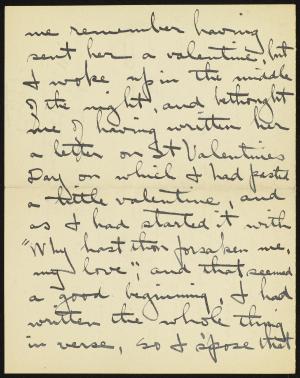 me remember having
sent her a valentine, but
I woke up in the middle
of the night, and bethought
me of having written her
a letter on St Valentines
Day on which I had pasted
a little valentine, and
as I had started it with
"Why hast thou forsaken me,
my love", and that seemed
a good beginning, I had
written the whole thing
in verse, so I s'pose that